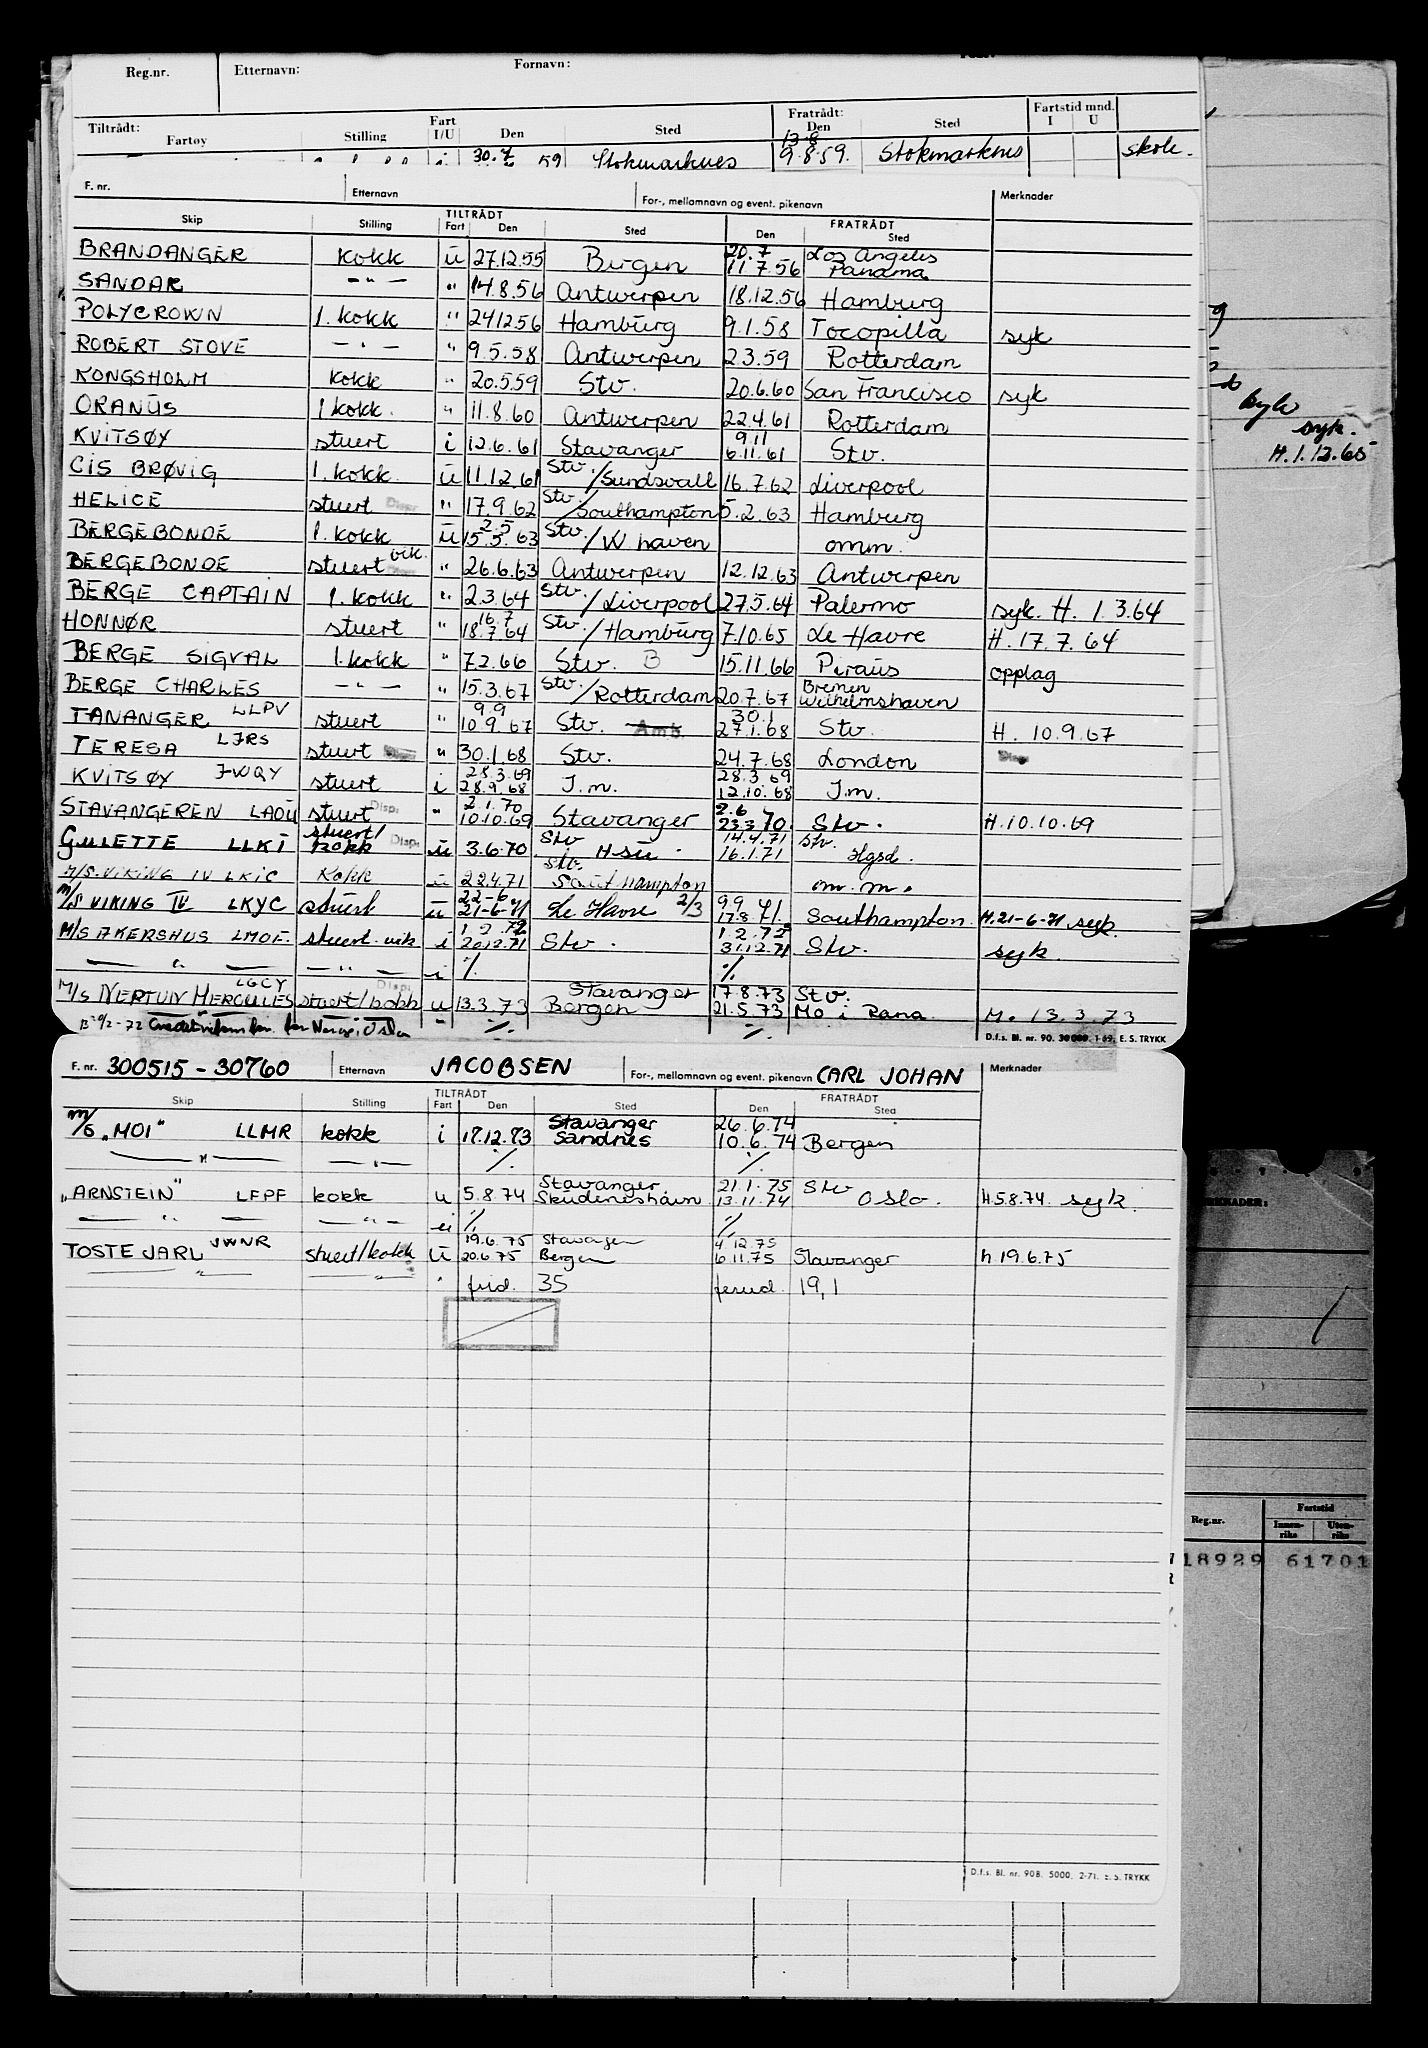 Reg.nr. Etternavn: Fornavn:
Tiltrådt: Fratrådt: Fartstid mnd.
Fartøy Stilling Fart I/U Den Sted Den Sted I U
13.8
30.7 59 Stokmarknes 9.8.59. Stokmarknes skole.
F. nr. Etternavn For-, mellomnavn og event. pikenavn Merknader
TILTRÅDT FRATRÅDT
Skip Stilling Fart Den Sted Den Sted
20.7 Los Angeles
BRANDANGER kokk u 27.12.55 Bergen 11.7.56 Panama
SANDAR — " — " 14.8.56 Antwerpen 18.12.56 Hamburg
POLYCROWN 1. kokk " 24.12.56 Hamburg 9.1.58 Tocopilla syk
ROBERT STOVE — " — " 9.5.58 Antwerpen 2.3.59 Rotterdam
KONGSHOLM kokk " 20.5.59 Stv. 20.6.60 San Francisco syk
ORANUS 1 kokk. " 11.8.60 Antwerpen 22.4.61 Rotterdam
9.11
KVITSØY stuert i 12.6.61 Stavanger 6.11.61 Stv.
CIS BRØVIG 1. kokk u 11.12.61 Stv./Sundsvall 16.7.62 Liverpool
HELICE stuert Disp. " 17.9.62 Stv./Southampton 5.2.63 Hamburg
2.5
BERGEBONDE 1. kokk u 15.5.63 Stv./W haven omm.
BERGEBONDE stuert vik. " 26.6.63 Antwerpen 12.12.63 Antwerpen
BERGE CAPTAIN 1. kokk " 2.3.64 Stv./Liverpool 27.5.64 Palermo syk. H. 1.3.64
16.7
HONNØR stuert " 18.7.64 Stv./Hamburg 7.10.65 Le Havre H. 17.7.64
BERGE SIGVAL 1. kokk " 7.2.66 Stv. B 15.11.66 Peraus opplag
Bremen
BERGE CHARLES — " — " 15.3.67 Stv./Rotterdam 20.7.67 Wilhelmshaven
9.9 30.1
TANANGER LLPV stuert " 10.9.67 Stv. Amb. 27.1.68 Stv. H. 10.9.67
TERESA LJRS stuert " 30.1.68 Stv. 24.7.68 London Disp
28.3.69 28.3.69
KVITSØY JWQY stuert i 28.9.68 I.m. 12.10.68 I.m.
2.1.70 2.6
STAVANGEREN LAOU stuert Disp. " 10.10.69 Stavanger 23.3 70. Stv. H.10.10.69
stuert/ Stv 14.4.71 Stv.
GULETTE LLKI kokk Disp. u 3.6.70 Hsu. 16.1.71 Hgsd.
Stv.
M/S. VIKING IV LKIC Kokk u 22.4.71 Southampton om.m.
22-6 9.9
M/S VIKING IV LKYC stuert u 21-6-71 Le Havre 2/3 17.8.71. Southampton H.21-6-71 syk.
1.2.72 1.2.72
M/S AKERSHUS LMOE. stuert-vik i 20.12.71 Stv. 31.12.71 Stv. syk.
— " — — " — i ٪ ٪
LGCY Disp. Stavanger 17.8.73 Stv.
M/S NERTUN HERCULES stuert/kokk u 13.3.73 Bergen 21.5.73 Mo i Rana M. 13.3.73
D.f.s. Bl. nr. 90. 30 000. 1-69. E. S. TRYKK
F. nr. 300515-30760 Etternavn JACOBSEN For-, mellomnavn og event. pikenavn CARL JOHAN Merknader
TILTRÅDT FRATRÅDT
Skip Stilling Fart Den Sted Den Sted
Stavanger 26.6.74
M/S „MOI" LLMR kokk i 17.12.73 Sandnes 10.6.74 Bergen
— " — — " — ٪ ٪
Stavanger 21.1.75 Stv
„ARNSTEIN" LFPF kokk u 5.8.74 Skudeneshavn 13.11.74 Oslo. H.5.8.74. syk.
— " — — " — ui ٪ ٪
19.6.75 Stavangen 4.12.75
TOSTE JARL JWNR stuert/kokk u 20.6.75 Bergen 6.11.75 Stavanger h 19.6.75
— " — — " — " frid. 35 feried. 19,1
D.f.s. Bl. nr. 90B. 5000. 2-71. E. S. TRYKK
syk.
H.1.12.65
MERKNADER:
Reg.nr. Fartstid
Innen-riks Uten-riks
18929 61701